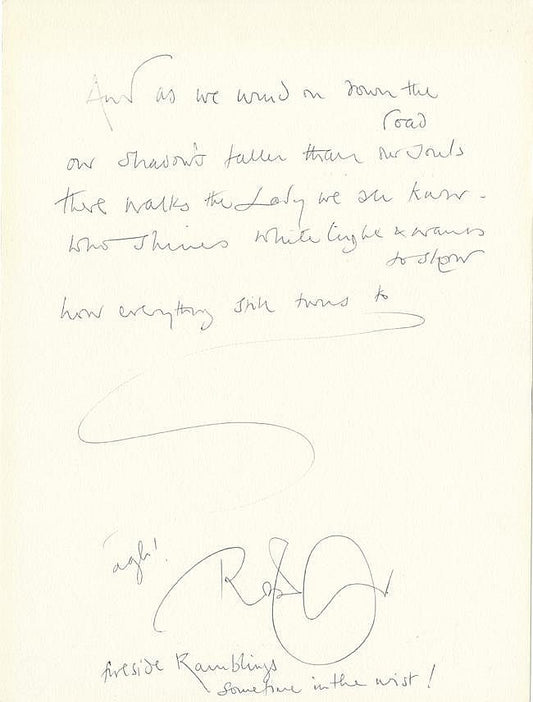 And as we wind on down the
road
our shadow's taller than our souls
there walks the Lady we all know -
who shines white light & wants
to show
how everything still turns to
'agh!
Rob
fireside Ramblings
sometime in the mist!